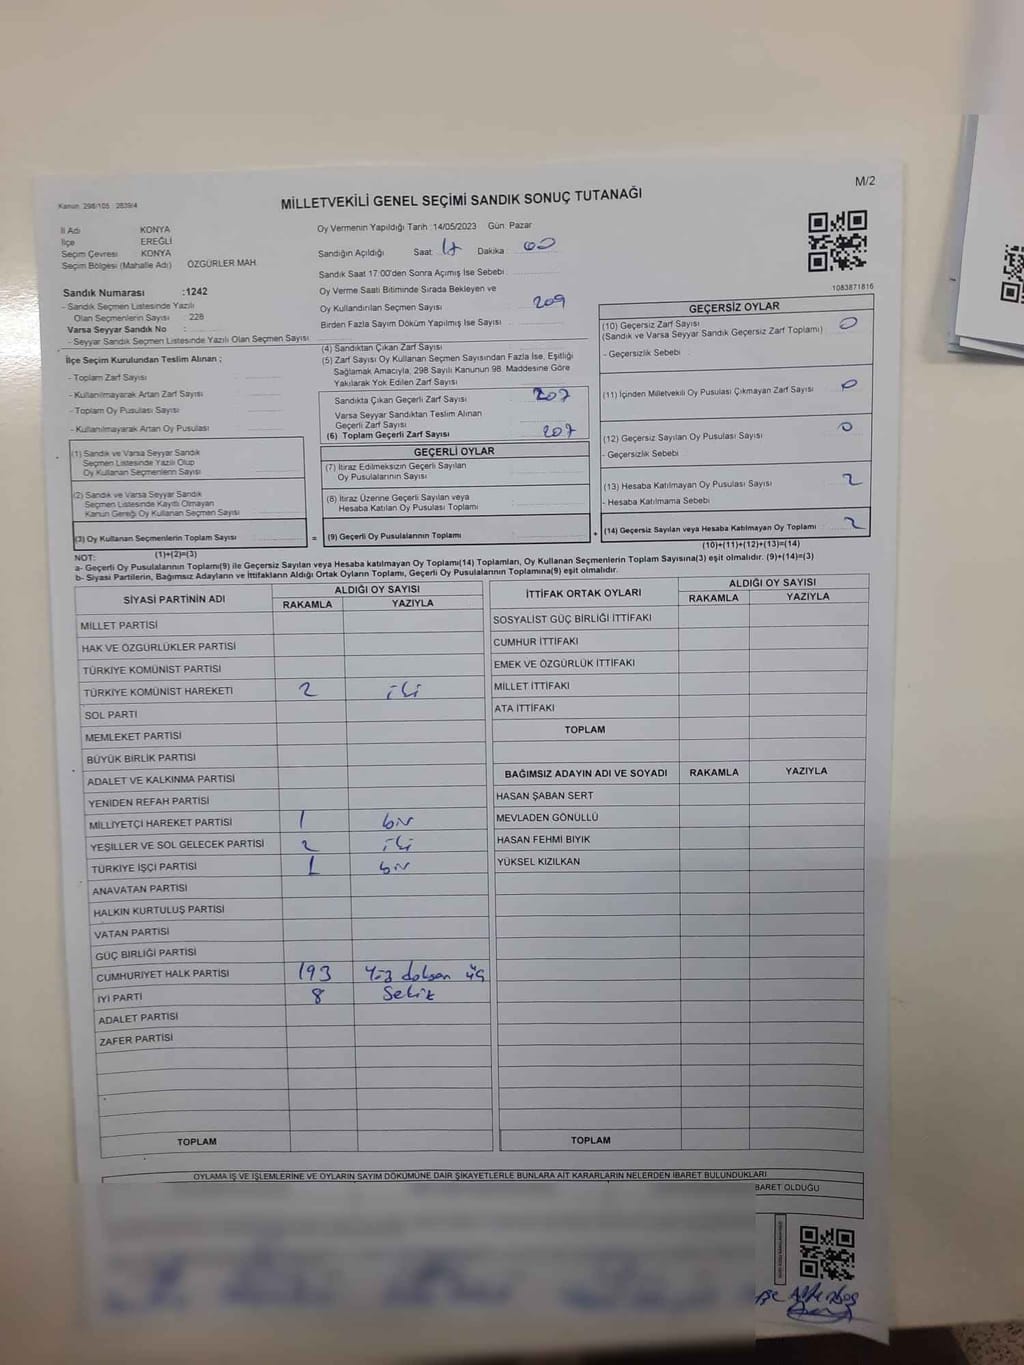 M/2
Kanun 298/105 2839/4
MİLLETVEKİLİ GENEL SEÇİMİ SANDIK SONUÇ TUTANAĞI
İl Adı KONYA
İlçe EREĞLİ
Seçim Çevresi KONYA
Seçim Bölgesi (Mahalle Adı) ÖZGÜRLER MAH.
Sandık Numarası :1242
- Sandık Seçmen Listesinde Yazılı
Olan Seçmenlerin Sayısı : 228
Varsa Seyyar Sandık No :
- Seyyar Sandık Seçmen Listesinde Yazılı Olan Seçmen Sayısı
İlçe Seçim Kurulundan Teslim Alınan ;
- Toplam Zarf Sayısı
- Kullanılmayarak Artan Zarf Sayısı
- Toplam Oy Pusulası Sayısı
- Kullanılmayarak Artan Oy Pusulası
(1) Sandık ve Varsa Seyyar Sandık
Seçmen Listesinde Yazılı Olup
Oy Kullanan Seçmenlerin Sayısı
(2) Sandık ve Varsa Seyyar Sandık
Seçmen Listesinde Kayıtlı Olmayan
Kanun Gereği Oy Kullanan Seçmen Sayısı
(3) Oy Kullanan Seçmenlerin Toplam Sayısı
Oy Vermenin Yapıldığı Tarih :14/05/2023 Gün: Pazar
Sandığın Açıldığı Saat 17 Dakika 00
Sandık Saat 17:00'den Sonra Açımış İse Sebebi
Oy Verme Saati Bitiminde Sırada Bekleyen ve
Oy Kullandırılan Seçmen Sayısı 209
Birden Fazla Sayım Döküm Yapılmış İse Sayısı
(4) Sandıktan Çıkan Zarf Sayısı
(5) Zarf Sayısı Oy Kullanan Seçmen Sayısından Fazla İse, Eşitliği
Sağlamak Amacıyla, 298 Sayılı Kanunun 98. Maddesine Göre
Yakılarak Yok Edilen Zarf Sayısı
Sandıkta Çıkan Geçerli Zarf Sayısı 207
Varsa Seyyar Sandıktan Teslim Alınan
Geçerli Zarf Sayısı
(6) Toplam Geçerli Zarf Sayısı 207
GEÇERLİ OYLAR
(7) İtiraz Edilmeksizin Geçerli Sayılan
Oy Pusulalarının Sayısı
(8) İtiraz Üzerine Geçerli Sayılan veya
Hesaba Katılan Oy Pusulası Toplamı
= (9) Geçerli Oy Pusulalarının Toplamı +
1083871816
GEÇERSİZ OYLAR
(10) Geçersiz Zarf Sayısı 0
(Sandık ve Varsa Seyyar Sandık Geçersiz Zarf Toplamı)
- Geçersizlik Sebebi
(11) İçinden Milletvekili Oy Pusulası Çıkmayan Zarf Sayısı 0
(12) Geçersiz Sayılan Oy Pusulası Sayısı 0
- Geçersizlik Sebebi
(13) Hesaba Katılmayan Oy Pusulası Sayısı 2
- Hesaba Katılmama Sebebi
(14) Geçersiz Sayılan veya Hesaba Katılmayan Oy Toplamı 2
(10)+(11)+(12)+(13)=(14)
NOT: (1)+(2)=(3)
a- Geçerli Oy Pusulalarının Toplamı(9) ile Geçersiz Sayılan veya Hesaba katılmayan Oy Toplamı(14) Toplamları, Oy Kullanan Seçmenlerin Toplam Sayısına(3) eşit olmalıdır. (9)+(14)=(3)
b- Siyasi Partilerin, Bağımsız Adayların ve İttifakların Aldığı Ortak Oyların Toplamı, Geçerli Oy Pusulalarının Toplamına(9) eşit olmalıdır.
SİYASİ PARTİNİN ADI ALDIĞI OY SAYISI
RAKAMLA YAZIYLA
MİLLET PARTİSİ
HAK VE ÖZGÜRLÜKLER PARTİSİ
TÜRKİYE KOMÜNİST PARTİSİ
TÜRKİYE KOMÜNİST HAREKETİ 2 iki
SOL PARTİ
MEMLEKET PARTİSİ
BÜYÜK BİRLİK PARTİSİ
ADALET VE KALKINMA PARTİSİ
YENİDEN REFAH PARTİSİ
MİLLİYETÇİ HAREKET PARTİSİ 1 bir
YEŞİLLER VE SOL GELECEK PARTİSİ 2 iki
TÜRKİYE İŞÇİ PARTİSİ 1 bir
ANAVATAN PARTİSİ
HALKIN KURTULUŞ PARTİSİ
VATAN PARTİSİ
GÜÇ BİRLİĞİ PARTİSİ
CUMHURİYET HALK PARTİSİ 193 Yüz doksan üç
İYİ PARTİ 8 Sekiz
ADALET PARTİSİ
ZAFER PARTİSİ
TOPLAM
İTTİFAK ORTAK OYLARI ALDIĞI OY SAYISI
RAKAMLA YAZIYLA
SOSYALİST GÜÇ BİRLİĞİ İTTİFAKI
CUMHUR İTTİFAKI
EMEK VE ÖZGÜRLÜK İTTİFAKI
MİLLET İTTİFAKI
ATA İTTİFAKI
TOPLAM
BAĞIMSIZ ADAYIN ADI VE SOYADI RAKAMLA YAZIYLA
HASAN ŞABAN SERT
MEVLADEN GÖNÜLLÜ
HASAN FEHMİ BIYIK
YÜKSEL KIZILKAN
TOPLAM
OYLAMA İŞ VE İŞLEMLERİNE VE OYLARIN SAYIM DÖKÜMÜNE DAİR ŞİKAYETLERLE BUNLARA AİT KARARLARIN NELERDEN İBARET BULUNDUKLARI
BARET OLDUĞU